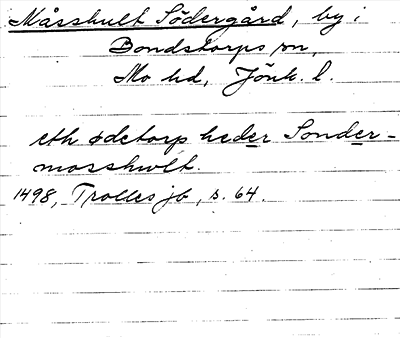 Måsshult Södergård, by i
Bondstorps sn,
Mo hd, Jönk. l.
eth ødetorp heder Sonder-
mosshwlt.
1498, Trolles jb, s. 64.